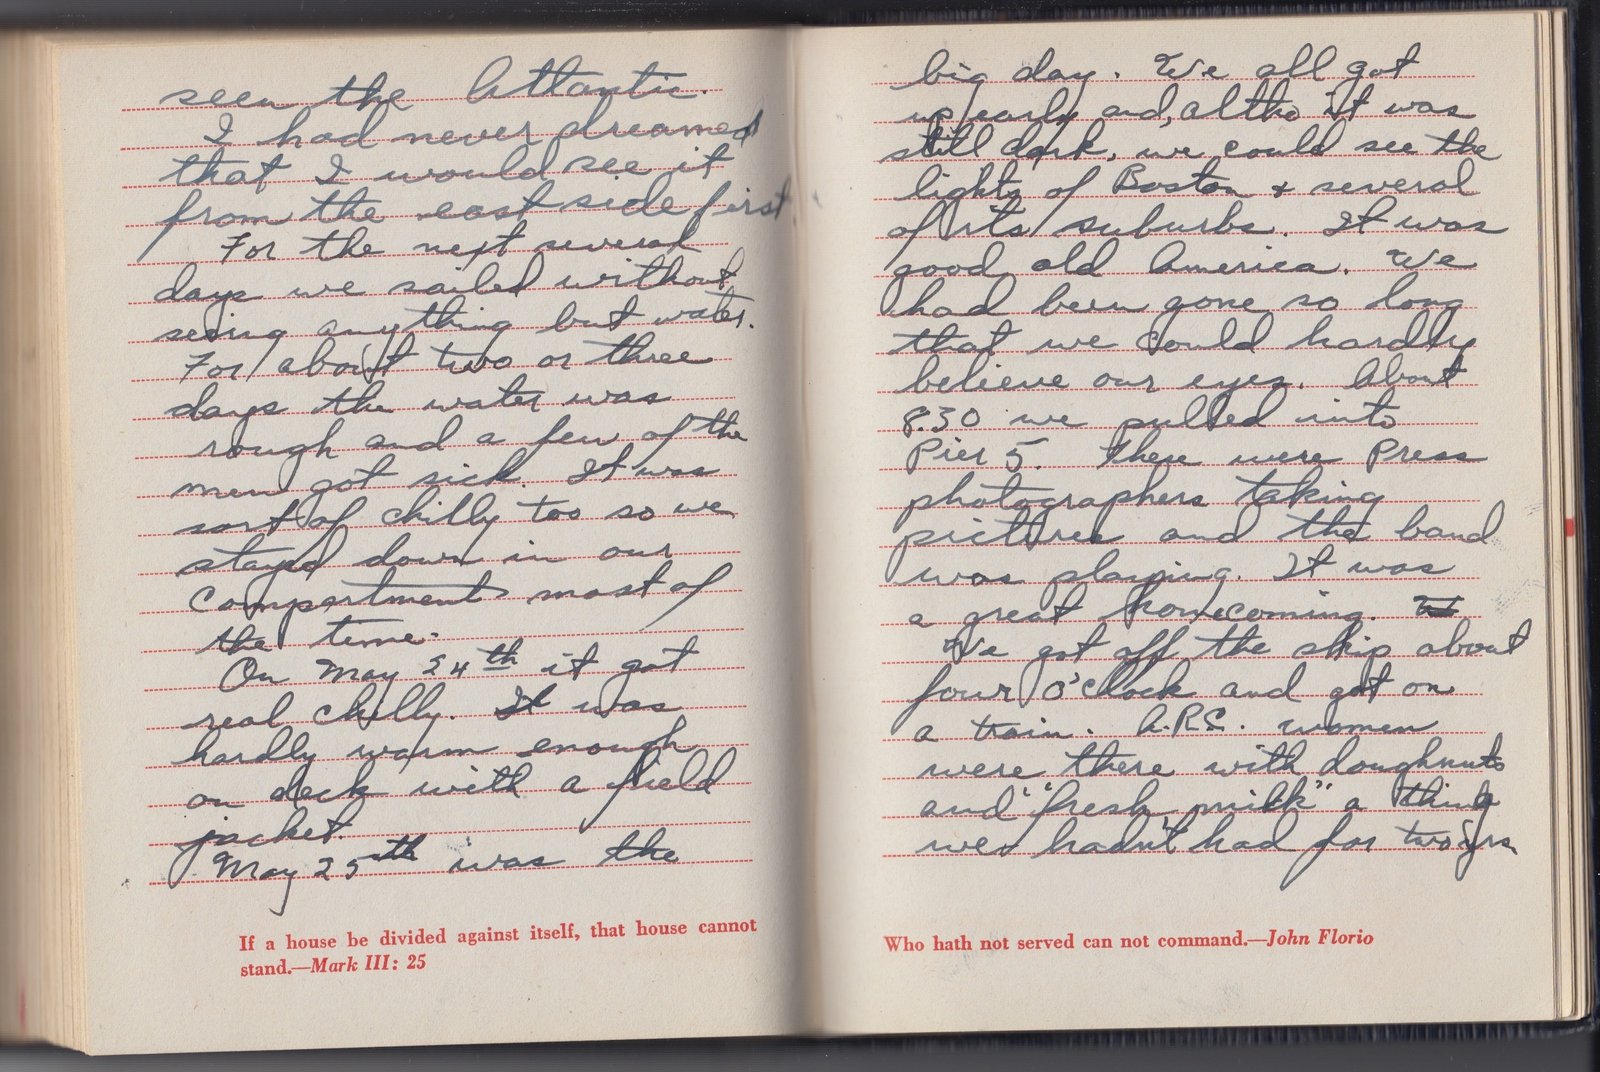 seen the Atlantic.
I had never dreamed
that I would see it
from the east side first
For the next several
days we sailed without
seeing anything but water.
For about two or three
days the water was
rough and a few of the
men got sick. It was
sort of chilly too so we
stayed down in our
compartments most of
the time.
On May 24th it got
real chilly. It was
hardly warm enough
on deck with a field
jacket.
May 25th was the
If a house be divided against itself, that house cannot
stand.—Mark III: 25
big day. We all got
up early and, altho it was
still dark, we could see the
lights of Boston & several
of its suburbs. It was
good old America. We
had been gone so long
that we could hardly
believe our eyes. About
8:30 we pulled into
Pier 5. There were Press
photographers taking
pictures and the band
was playing. It was
a great homecoming.
We got off the ship about
four o'clock and got on
a train. A.R.C. women
were there with doughnuts
and "fresh milk" a thing
we hadn't had for two yrs.
Who hath not served can not command.—John Florio